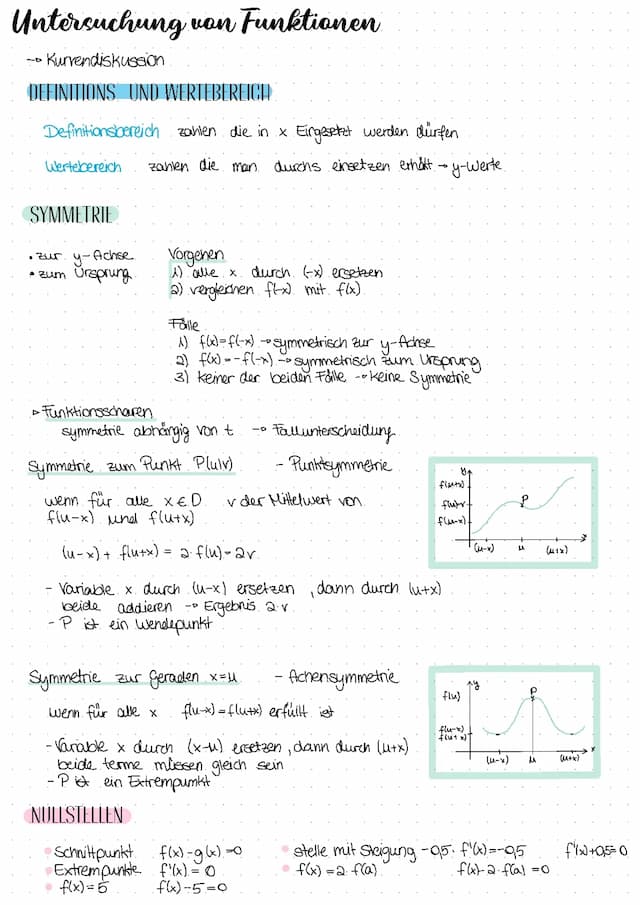 Untersuchung von Funktionen
→ Kurvendiskussion
DEFINITIONS UND WERTEBEREICH
Definitionsbereich zahlen die in x Eingesetzt werden dürfen
Wertebereich zahlen die man durchs einsetzen erhält → y-Werte
SYMMETRIE
• zur y-Achse
• zum Ursprung
Vorgehen
1) alle x durch (-x) ersetzen
2) vergleichen f(-x) mit f(x)
Fälle
1) f(x)=f(-x) → symmetrisch zur y-Achse
2) f(x)=-f(-x) → symmetrisch zum Ursprung
3) keiner der beiden Fälle → keine Symmetrie
▹ Funktionsscharen
symmetrie abhängig von t → Fallunterscheidung
Symmetrie zum Punkt P(u|v) - Punktsymmetrie
wenn für alle x∈D v der Mittelwert von
f(u-x) und f(u+x)
(u-x) + f(u+x) = 2·f(u) = 2v
- Variable x durch (u-x) ersetzen, dann durch (u+x)
beide addieren → Ergebnis 2·v
- P ist ein Wendepunkt
y
f(u+x)
f(u)=v
f(u-x)
P
(u-x) u (u+x) x
Symmetrie zur Geraden x=u - Achensymmetrie
wenn für alle x f(u-x)=f(u+x) erfüllt ist
- Variable x durch (x-u) ersetzen, dann durch (u+x)
beide terme müssen gleich sein
- P ist ein Extrempunkt
y
P
f(u)
f(u-x)
f(u+x)
(u-x) u (u+x) x
NULLSTELLEN
• Schnittpunkt f(x)-g(x)=0
• Extrempunkte f'(x)=0
• f(x)=5 f(x)-5=0
• stelle mit Steigung -0,5· f'(x)=-0,5 f'(x)+0,5=0
• f(x)=2·f(a) f(x)-2·f(a)=0